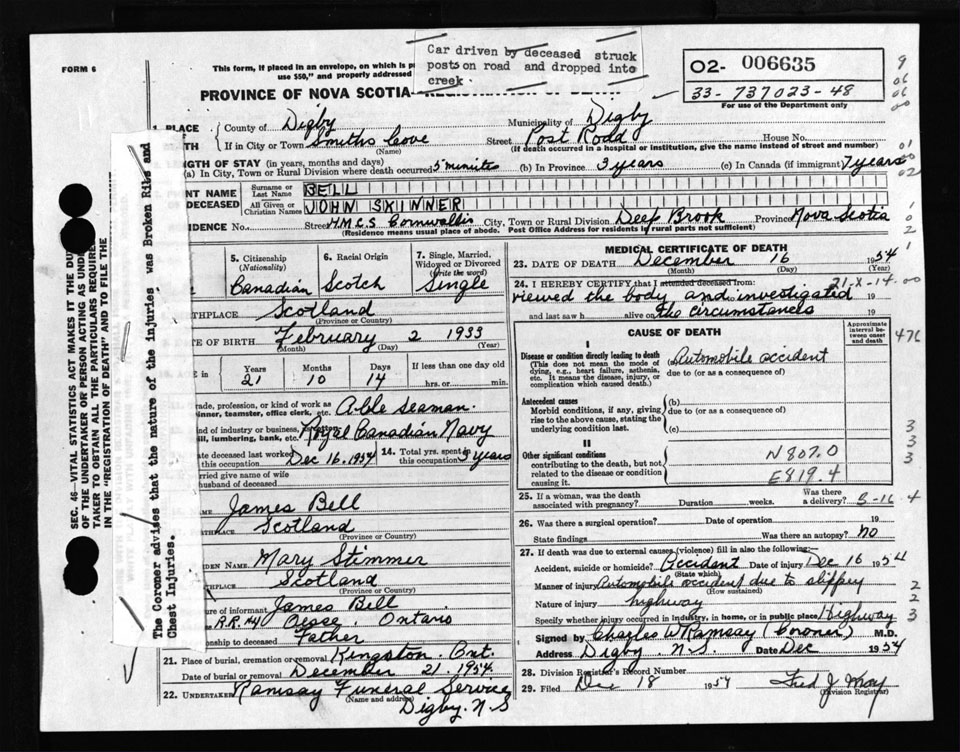 FORM 6
This form, if placed in an envelope, on which is
use $50," and properly addressed
Car driven by deceased struck
posts on road and dropped into
creek.
O2- 006635
33-737023-48
For use of the Department only
PROVINCE OF NOVA SCOTIA
1. PLACE
County of Digby Municipality of Digby
If in City or Town Smiths Cove Street Post Road House No.
(Name) (If death occurred in a hospital or institution, give the name instead of street and number)
LENGTH OF STAY (in years, months and days)
(a) In City, Town or Rural Division where death occurred 5 minutes (b) In Province 3 years (c) In Canada (if immigrant) 7 years
PRINT NAME Surname or Last Name BELL
DECEASED All Given or Christian Names JOHN SKINNER
RESIDENCE No. Street H.M.C.S Cornwallis City, Town or Rural Division Deep Brook Province Nova Scotia
(Residence means usual place of abode. Post Office Address for residents in rural parts not sufficient)
5. Citizenship (Nationality) 6. Racial Origin 7. Single, Married, Widowed or Divorced (Write the word)
Canadian Scotch Single
THPLACE Scotland
(Province or Country)
TE OF BIRTH February 2 1933
(Month) (Day) (Year)
Years Months Days If less than one day old
21 10 14 hrs. or min.
rade, profession, or kind of work as
inner, teamster, office clerk, etc. Able Seaman.
ind of industry or business,
ill, lumbering, bank, etc. Royal Canadian Navy
ate deceased last worked
this occupation Dec 16. 1954 14. Total yrs. spent in this occupation 3 years
arried give name of wife
husband of deceased
NAME James Bell
Scotland
(Province or Country)
DEN NAME Mary Stimmer
THPLACE Scotland
(Province or Country)
ture of informant James Bell
R.R. #4 Ontario
onship to deceased Father
21. Place of burial, cremation or removal Kingston. Ont.
Date of burial or removal December 21. 1954.
22. UNDERTAKER Ramsay Funeral Service
(Name and address) Digby. N.S
MEDICAL CERTIFICATE OF DEATH
23. DATE OF DEATH December 16 1954
(Month) (Day) (Year)
24. I HEREBY CERTIFY that I attended deceased from: 21-X-14.00
viewed the body and investigated 19
and last saw h alive on the circumstances 19
CAUSE OF DEATH
Approximate interval between onset and death
I
Disease or condition directly leading to death
(This does not mean the mode of dying, e.g., heart failure, asthenia, etc. It means the disease, injury, or complication which caused death.)
Automobile accident
due to (or as a consequence of)
476
Antecedent causes
Morbid conditions, if any, giving rise to the above cause, stating the underlying condition last.
(b)
due to (or as a consequence of)
(c)
II
Other significant conditions
contributing to the death, but not related to the disease or condition causing it.
N807.0
E819.4
25. If a woman, was the death associated with pregnancy? Duration weeks. Was there a delivery? 5-16-4
26. Was there a surgical operation? Date of operation 19
State findings Was there an autopsy? no
27. If death was due to external causes (violence) fill in also the following:
Accident, suicide or homicide? Accident Date of injury Dec 16 1954
(State which)
Manner of injury Automobile accident due to slippey
(How sustained)
Nature of injury highway
Specify whether injury occurred in industry, in home, or in public place Highway
Signed by Charles W Ramsay (Coroner) M.D.
Address Digby. N.S. Date Dec 1954
28. Division Registrar's Record Number
29. Filed Dec 18 1954 Fred J.
(Division Registrar)
SEC. 46—VITAL STATISTICS ACT MAKES IT THE DU
OF THE UNDERTAKER OR PERSON ACTING AS UND
TAKER TO OBTAIN ALL THE PARTICULARS REQUIRE
IN THE "REGISTRATION OF DEATH" AND TO FILE THE
The Coroner advises that the nature of the injuries was Broken Ribs and
Chest Injuries.